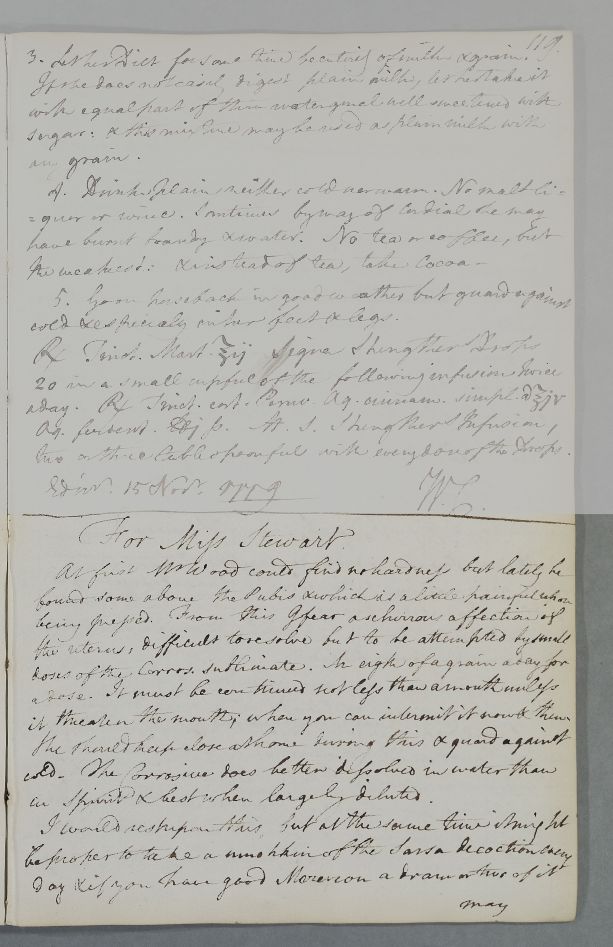 119.
3. Let her Diet for some time be entirely of milk & grain.
If she does not easily digest plain milk, let her take it
with equal part of thin watergruel well sweetened with
sugar: & this mixture may be used as plain milk with
any grain.
4. Drink plain neither cold nor warm. No malt li-
=quor or wine. Sometimes by way of Cordial she may
have burnt brandy & water. No tea or coffee, but
the weakest: & instead of tea, take Cocoa -
5. Go on horseback in good weather but guard against
cold & especialy in her feet & legs.
℞ Tinct. Mart. ʒij Signa Strengthen.g Drops
20 in a small cupful of the following infusion twice
a day. ℞ Tinct. cort. Peruv. Aq. cinnam. simpl. a ʒiv
Aq. fervent. ℔j ſs. M. S. Strengthen.g Infusion,
two or three tablespoonful with every dose of the Drops.
Edinr. 15 Novr. 1779 W. C.
For Miss Stewart.
At first Mr Wood could find no hardness but lately he
found some above the Pubis & which is a little painful when
being pressed. From this I fear a schirrous affection of
the uterus, difficult to resolve but to be attempted by small
doses of the Corros. sublimate. An eigh of a grain a day for
a dose. It must be continued not less than a month unless
it threaten the mouth, when you can intermit it now & then
She should keep close at home during this & guard against
cold - The Corrosive does better dissolved in water than
in Spirits & best when largely diluted.
I would rest upon this, but at the same time it might
be proper to take a mutchkin of the Sarsa decoction every
day & if you have good Mezereon a dram or two of it
may